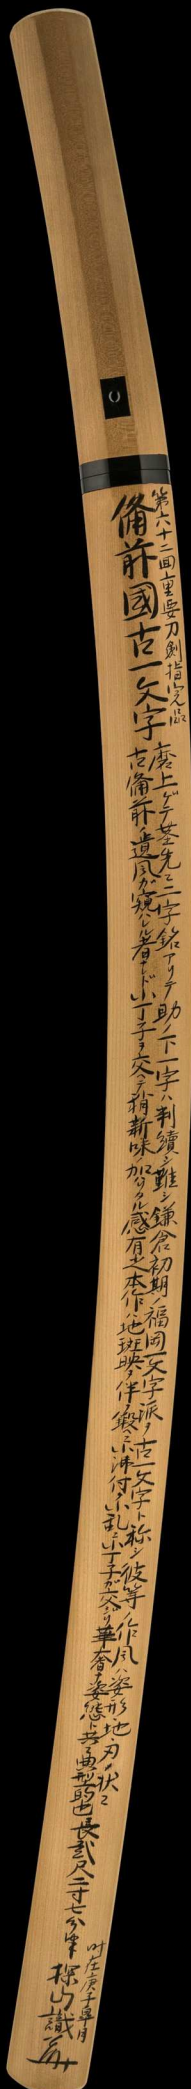 第六十二回重要刀剣指定品
備前國古一文字
磨上ゲテ茎先ニ二字銘アリテ助ノ下一字ハ判續シ難シ鎌倉初期ノ福岡一文字派ヲ古一文字ト称シ彼等ノ作風ハ姿形地刃ノ状ニ
古備前ノ遺風ガ窺ハレル者ナレド小丁子ヲ交ヘテ猶新味ノ加ハリタル感有之本作ハ地斑映ヲ伴フ鍛ニ小沸付ク小乱ニ小丁子ガ交ジリ華奢ナ姿態ト共ニ典型的也
長貳尺二寸七分半
時在庚子皐月
探山識